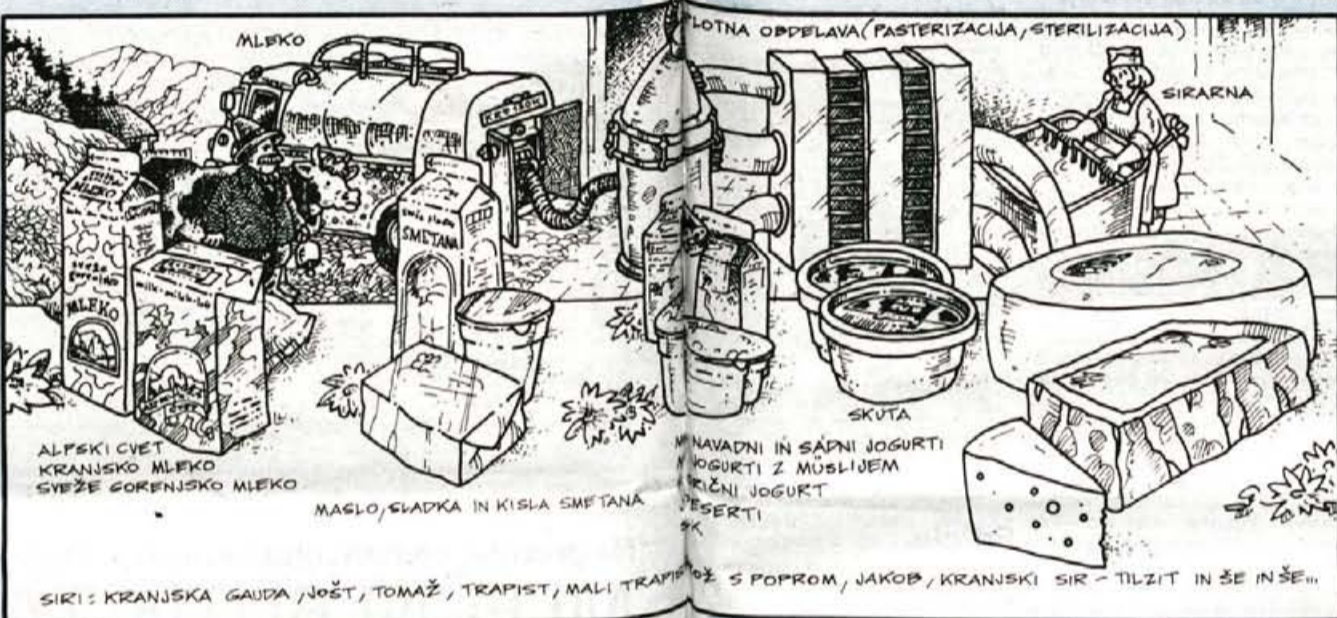 MLEKO
LOTNA OBDELAVA (PASTERIZACIJA, STERILIZACIJA)
SIRARNA
MLEKO
MLEKO
SMETANA
SKUTA
ALPSKI CVET
KRANJSKO MLEKO
SVEŽE GORENJSKO MLEKO
MASLO, SLADKA IN KISLA SMETANA
NAVADNI IN SADNI JOGURTI
JOGURTI Z MÜSLIJEM
JOGURT
DESERTI
SIRI: KRANJSKA GAUDA, JOŠT, TOMAŽ, TRAPIST, MALI TRAPIST S POPROM, JAKOB, KRANJSKI SIR - TILZIT IN ŠE IN ŠE...